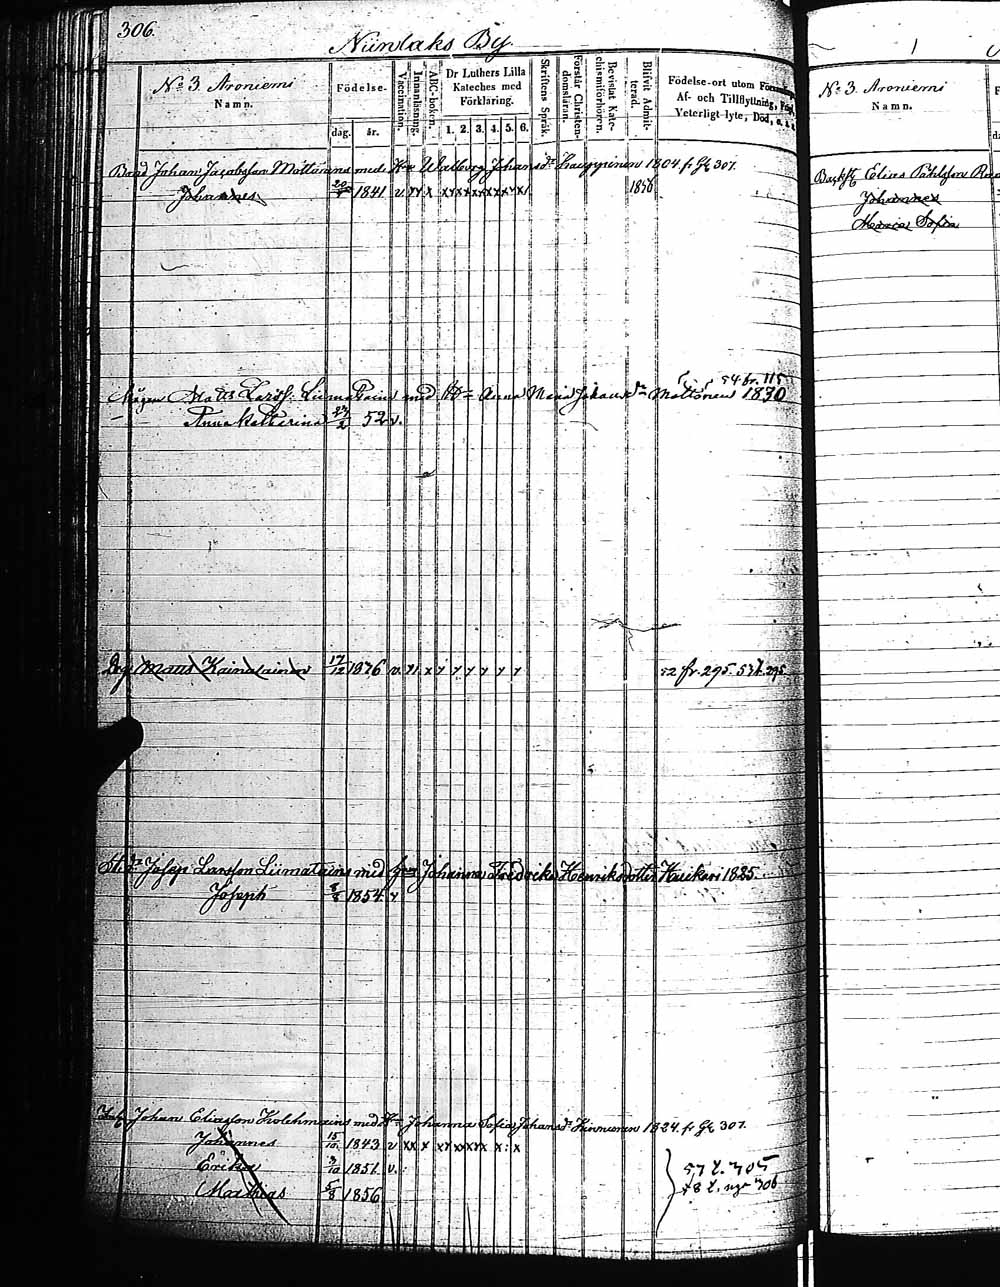 306.
Niinlaks By.
No 3 Aroniemi
Namn.
Födelse-
dag. år.
Vaccination.
Innanläsning.
ABC-boken.
Dr Luthers Lilla Kateches med Förklaring.
1. 2. 3. 4. 5. 6.
Skriftens Språk.
Förstår Christendomsläran.
Bevistat Katechismiförhören.
Blifvit Admitterad.
Födelse-ort utom
Af- och Tillflyttning,
Veterligt lyte, Död,
Johan Jacobsson Möttönens med Hu Walborg Johansdr Kauppinen 1804 fr 307.
Johannes 20/ 1841 v. xy x x y x x x x x x 1856
54 fr. 115
Mågen Matts Larsf. Liimatain med Hu Anna Maria Johansdr Möttönen 1830
Anna Katharina 24/2 52 v.
Matts Kainulainen 17/12 1076 v. x y y y y y y 52 fr. 295. 53 t. 295.
Joseph Larsson Liimatains med Johanna Fredrika Henriksdotter Kuikari 1825.
Joseph 8/8 1854 v
Johan Eliasson Kolehmains med Hu Johanna Sofia Johansdr Kinnunen 1824 fr 307.
Johannes 15/10 1843 v xx x x y x x x y x x : x
Erika /10 1851. v.
57 t. 305
Mathias 5/8 1856
58 t. 306
No 3. Aroniemi
Namn.
Elias Påhlsson
Johannes
Maria Sofia